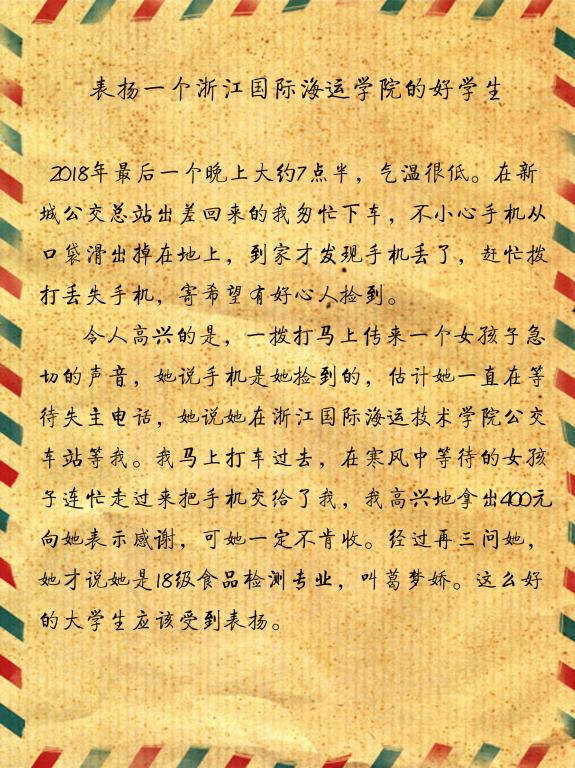 表扬一个浙江国际海运学院的好学生
2018年最后一个晚上大约7点半，气温很低。在新
城公交总站出差回来的我匆忙下车，不小心手机从
口袋滑出掉在地上，到家才发现手机丢了，赶忙拨
打丢失手机，寄希望有好心人捡到。
令人高兴的是，一拨打马上传来一个女孩子急
切的声音，她说手机是她捡到的，估计她一直在等
待失主电话，她说她在浙江国际海运技术学院公交
车站等我。我马上打车过去，在寒风中等待的女孩
子连忙走过来把手机交给了我，我高兴地拿出400元
向她表示感谢，可她一定不肯收。经过再三问她，
她才说她是18级食品检测专业，叫葛梦娇。这么好
的大学生应该受到表扬。